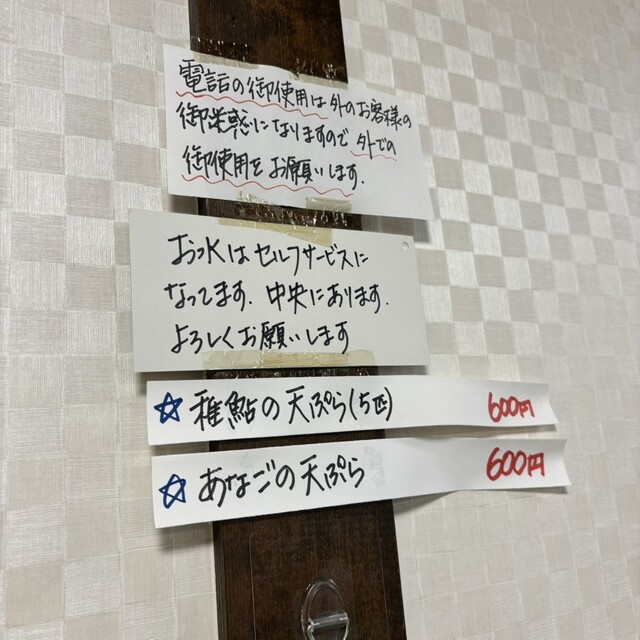 電話の御使用は外のお客様の
御迷惑になりますので外での
御使用をお願いします.
お水はセルフサービスに
なってます. 中央にあります.
よろしくお願いします
☆ 稚鮎の天ぷら(5匹) 600円
☆ あなごの天ぷら 600円